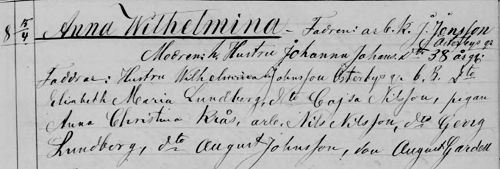 8 5/4 Anna Wilhelmina - Fadren: arb.k. J. Jönsson
Österbys gr
Modren: h. Hustru Johanna Johans dtr 38 årgl:
Faddrar: Hustru Wilhelmina Johnsson Österbys g: b. H. dto
Elisabeth Maria Lundberg, dto Cajsa Nilsson, pigan
Anna Christina Krås, arb. Nils Nilsson, dto Georg
Lundberg, dto August Johnsson, von August Gardell